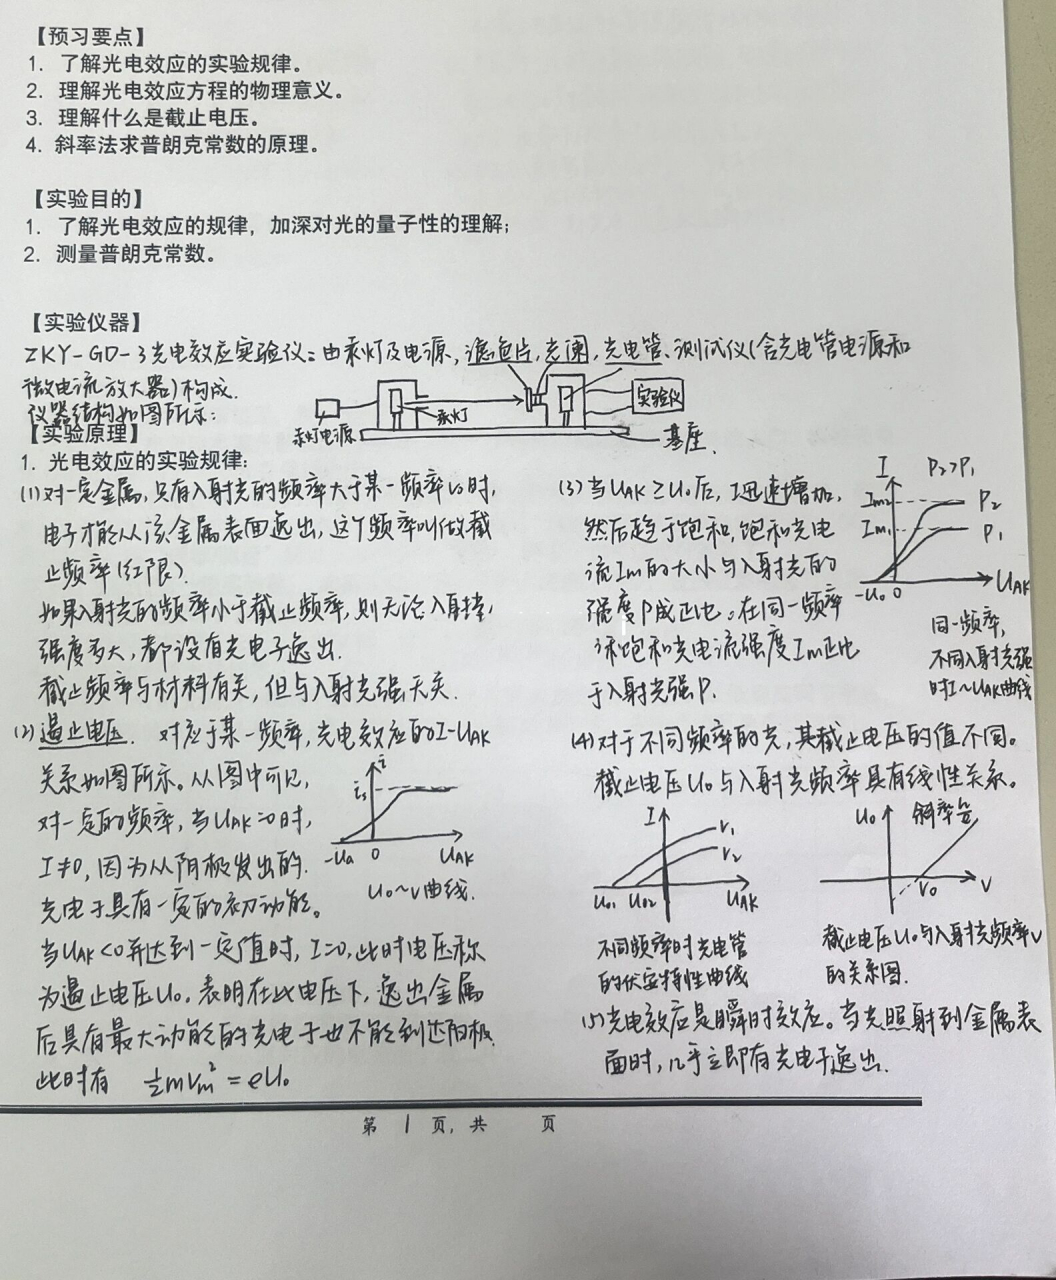 【预习要点】
1. 了解光电效应的实验规律。
2. 理解光电效应方程的物理意义。
3. 理解什么是截止电压。
4. 斜率法求普朗克常数的原理。
【实验目的】
1. 了解光电效应的规律，加深对光的量子性的理解；
2. 测量普朗克常数。
【实验仪器】
ZKY-GD-3光电效应实验仪：由汞灯及电源，滤色片，光阑，光电管、测试仪(含光电管电源和
微电流放大器)构成.
仪器结构如图所示：
汞灯电源
汞灯
实验仪
基座.
【实验原理】
1. 光电效应的实验规律：
(1)对一定金属，只有入射光的频率大于某一频率ν0时，
电子才能从该金属表面逸出，这个频率叫做截
止频率(红限).
如果入射光的频率小于截止频率，则无论入射光
强度多大，都没有光电子逸出.
截止频率与材料有关，但与入射光强无关.
(2)遏止电压. 对应于某一频率，光电效应的I-UAK
关系如图所示。从图中可见，
对一定的频率，当UAK=0时，
I≠0，因为从阴极发出的
光电子具有一定的初动能。
i
is
-Ua 0 UAK
U0~ν曲线.
当UAK<0并达到一定值时，I=0，此时电压称
为遏止电压U0. 表明在此电压下，逸出金属
后具有最大动能的光电子也不能到达阳极.
此时有 ½mVm² = eU0
(3)当UAK≥U0后，I迅速增加，
然后趋于饱和，饱和光电
流Im的大小与入射光的
强度P成正比。在同一频率
饱和光电流强度Im正比
于入射光强P.
I P2>P1
Im2 P2
Im1 P1
-U0 0 UAK
同一频率，
不同入射光强
时I~UAK曲线
(4)对于不同频率的光，其截止电压的值不同。
截止电压U0与入射光频率具有线性关系。
I
ν1
ν2
U01 U02 UAK
不同频率时光电管
的伏安特性曲线
U0 斜率
ν0 ν
截止电压U0与入射光频率ν
的关系图.
(5)光电效应是瞬时效应。当光照射到金属表
面时，几乎立即有光电子逸出.
第 1 页，共 页